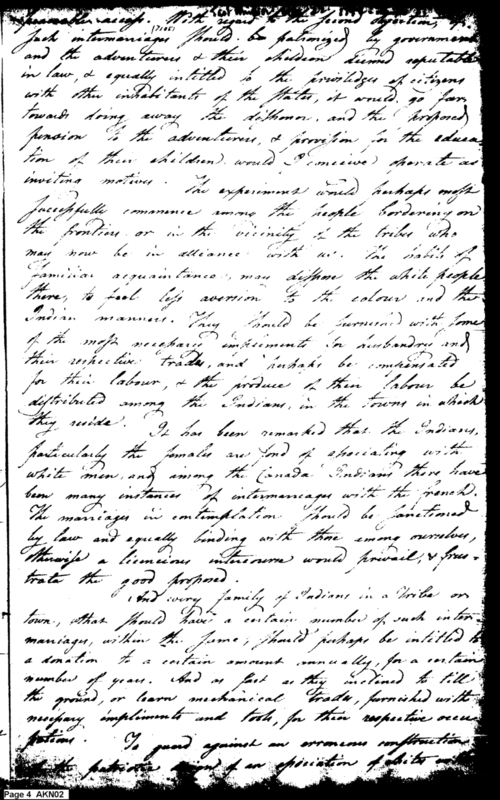 peaceable access. With regard to the second objection, if
such intermarriages should be patronized by government
and the adventurers & their children deemed reputable
in law, & equally intitled to the priviledges of citizens
with other inhabitants of the States, it would go far
towards doing away the dishonor, and the proposed
pension to the adventurers, & provision for the educa-
tion of their children would I conceive operate as
inviting motives. The experiment would perhaps most
successfully commence among the people bordering on
the frontiers or in the vicinity of the tribes who
may now be in alliance with us. The habit of
familiar acquaintance, may dispose the white people
there, to feel less aversion to the colour and the
Indian manners. They should be furnished with some
of the most necessary impliments for husbandry and
their respective trades, and perhaps be compensated
for their labour, & the produce of their labour be
distributed among the Indians, in the towns in which
they reside. It has been remarked that the Indians,
particularly the females are fond of associating with
white men, and among the Canada Indians there have
been many instances of intermarriages with the french.
The marriages in contemplation should be sanctioned
by law and equally binding with those among ourselves,
otherwise a licencious intercourse would prevail, & frus-
trate the good proposed.
And every family of Indians in a Tribe or
town, that should have a certain number of such inter-
marriages, within the same, should perhaps be intitled to
a donation to a certain amount annually, for a certain
number of years. And as fast as they inclined to till
the ground, or learn mechanical trades, furnished with
necessary impliments and tools, for their respective occu-
pations. To guard against an erroneous construction
the patriotic design of an association of whites
Page 4 AKN02